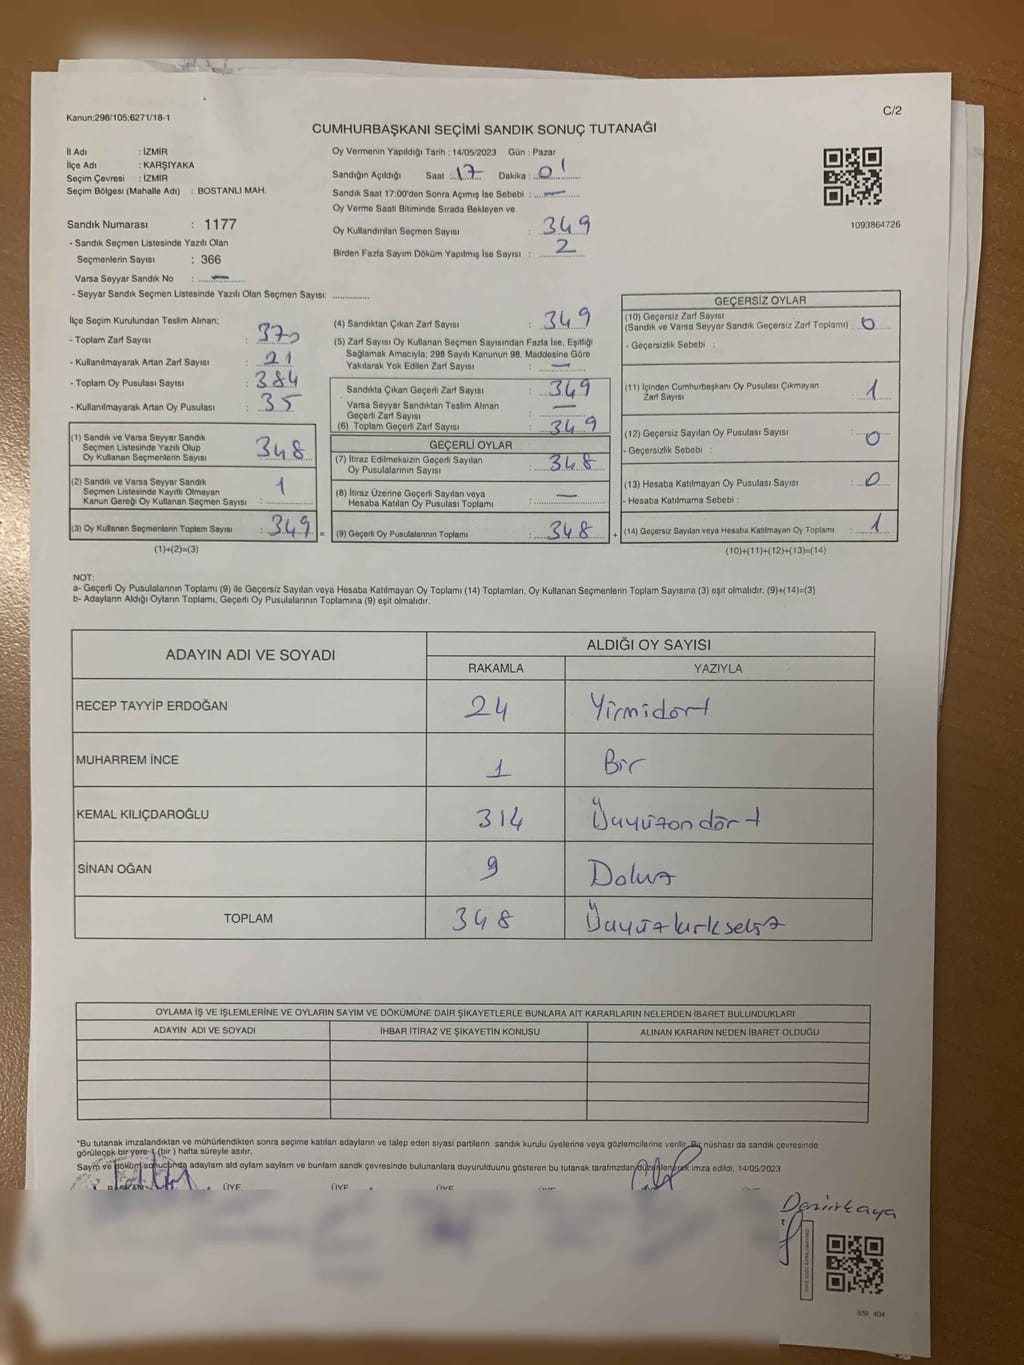 Kanun:298/105;6271/18-1
C/2
CUMHURBAŞKANI SEÇİMİ SANDIK SONUÇ TUTANAĞI
İl Adı : İZMİR
İlçe Adı : KARŞIYAKA
Seçim Çevresi : İZMİR
Seçim Bölgesi (Mahalle Adı) : BOSTANLI MAH.
Oy Vermenin Yapıldığı Tarih : 14/05/2023 Gün : Pazar
Sandığın Açıldığı Saat : 17 Dakika : 01
Sandık Saat 17:00'den Sonra Açımış İse Sebebi : —
Oy Verme Saati Bitiminde Sırada Bekleyen ve
Oy Kullandırılan Seçmen Sayısı : 349
Birden Fazla Sayım Döküm Yapılmış İse Sayısı : 2
1093864726
Sandık Numarası : 1177
- Sandık Seçmen Listesinde Yazılı Olan
Seçmenlerin Sayısı : 366
Varsa Seyyar Sandık No : —
- Seyyar Sandık Seçmen Listesinde Yazılı Olan Seçmen Sayısı: ..............
İlçe Seçim Kurulundan Teslim Alınan;
- Toplam Zarf Sayısı : 370
- Kullanılmayarak Artan Zarf Sayısı : 21
- Toplam Oy Pusulası Sayısı : 384
- Kullanılmayarak Artan Oy Pusulası : 35
(1) Sandık ve Varsa Seyyar Sandık
Seçmen Listesinde Yazılı Olup
Oy Kullanan Seçmenlerin Sayısı 348
(2) Sandık ve Varsa Seyyar Sandık
Seçmen Listesinde Kayıtlı Olmayan
Kanun Gereği Oy Kullanan Seçmen Sayısı : 1
(3) Oy Kullanan Seçmenlerin Toplam Sayısı : 349
(1)+(2)=(3)
(4) Sandıktan Çıkan Zarf Sayısı : 349
(5) Zarf Sayısı Oy Kullanan Seçmen Sayısından Fazla İse, Eşitliği
Sağlamak Amacıyla; 298 Sayılı Kanunun 98. Maddesine Göre
Yakılarak Yok Edilen Zarf Sayısı : —
Sandıkta Çıkan Geçerli Zarf Sayısı : 349
Varsa Seyyar Sandıktan Teslim Alınan
Geçerli Zarf Sayısı : —
(6) Toplam Geçerli Zarf Sayısı : 349
GEÇERLİ OYLAR
(7) İtiraz Edilmeksizin Geçerli Sayılan
Oy Pusulalarının Sayısı : 348
(8) İtiraz Üzerine Geçerli Sayılan veya
Hesaba Katılan Oy Pusulası Toplamı : —
= (9) Geçerli Oy Pusulalarının Toplamı : 348 +
GEÇERSİZ OYLAR
(10) Geçersiz Zarf Sayısı
(Sandık ve Varsa Seyyar Sandık Geçersiz Zarf Toplamı) : 0
- Geçersizlik Sebebi :
(11) İçinden Cumhurbaşkanı Oy Pusulası Çıkmayan
Zarf Sayısı : 1
(12) Geçersiz Sayılan Oy Pusulası Sayısı : 0
- Geçersizlik Sebebi :
(13) Hesaba Katılmayan Oy Pusulası Sayısı : 0
- Hesaba Katılmama Sebebi :
(14) Geçersiz Sayılan veya Hesaba Katılmayan Oy Toplamı : 1
(10)+(11)+(12)+(13)=(14)
NOT:
a- Geçerli Oy Pusulalarının Toplamı (9) ile Geçersiz Sayılan veya Hesaba Katılmayan Oy Toplamı (14) Toplamları, Oy Kullanan Seçmenlerin Toplam Sayısına (3) eşit olmalıdır. (9)+(14)=(3)
b- Adayların Aldığı Oyların Toplamı, Geçerli Oy Pusulalarının Toplamına (9) eşit olmalıdır.
ADAYIN ADI VE SOYADI ALDIĞI OY SAYISI
RAKAMLA YAZIYLA
RECEP TAYYİP ERDOĞAN 24 Yirmidört
MUHARREM İNCE 1 Bir
KEMAL KILIÇDAROĞLU 314 Üçyüzondört
SİNAN OĞAN 9 Dokuz
TOPLAM 348 Üçyüzkırksekiz
OYLAMA İŞ VE İŞLEMLERİNE VE OYLARIN SAYIM VE DÖKÜMÜNE DAİR ŞİKAYETLERLE BUNLARA AİT KARARLARIN NELERDEN İBARET BULUNDUKLARI
ADAYIN ADI VE SOYADI İHBAR İTİRAZ VE ŞİKAYETİN KONUSU ALINAN KARARIN NEDEN İBARET OLDUĞU
*Bu tutanak imzalandıktan ve mühürlendikten sonra seçime katılan adayların ve talep eden siyasi partilerin sandık kurulu üyelerine veya gözlemcilerine verilir. Bir nüshası da sandık çevresinde
görülecek bir yere 1 (bir ) hafta süreyle asılır.
Sayım ve döküm sonucunda adayların ald oyların sayların ve bunların sandk çevresinde bulunanlara duyurulduunu gösteren bu tutanak tarafmzdan düzenlenerek imza edildi. 14/05/2023
ÜYE ÜYE ÜYE
Demirkaya
SSI 404